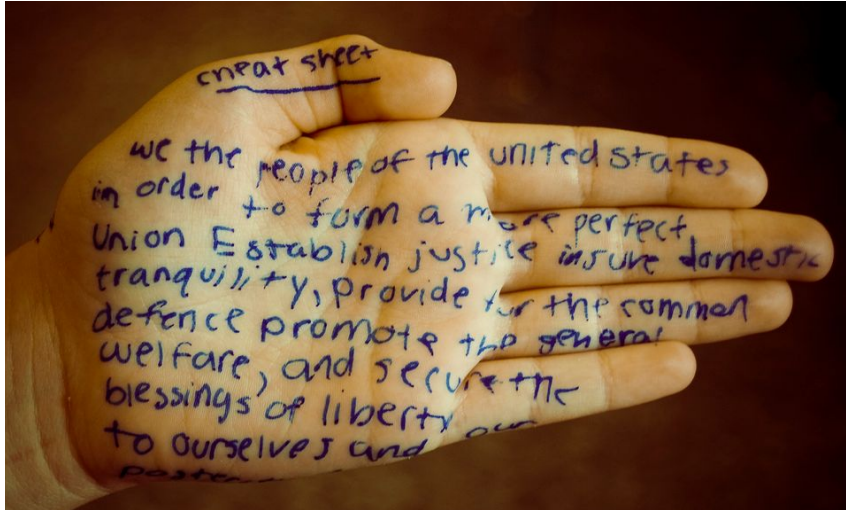 cheat sheet
we the people of the united states
in order to form a more perfect
Union Establish justice insure domestic
tranquility, provide for the common
defence promote the general
welfare, and secure the
blessings of liberty
to ourselves and our